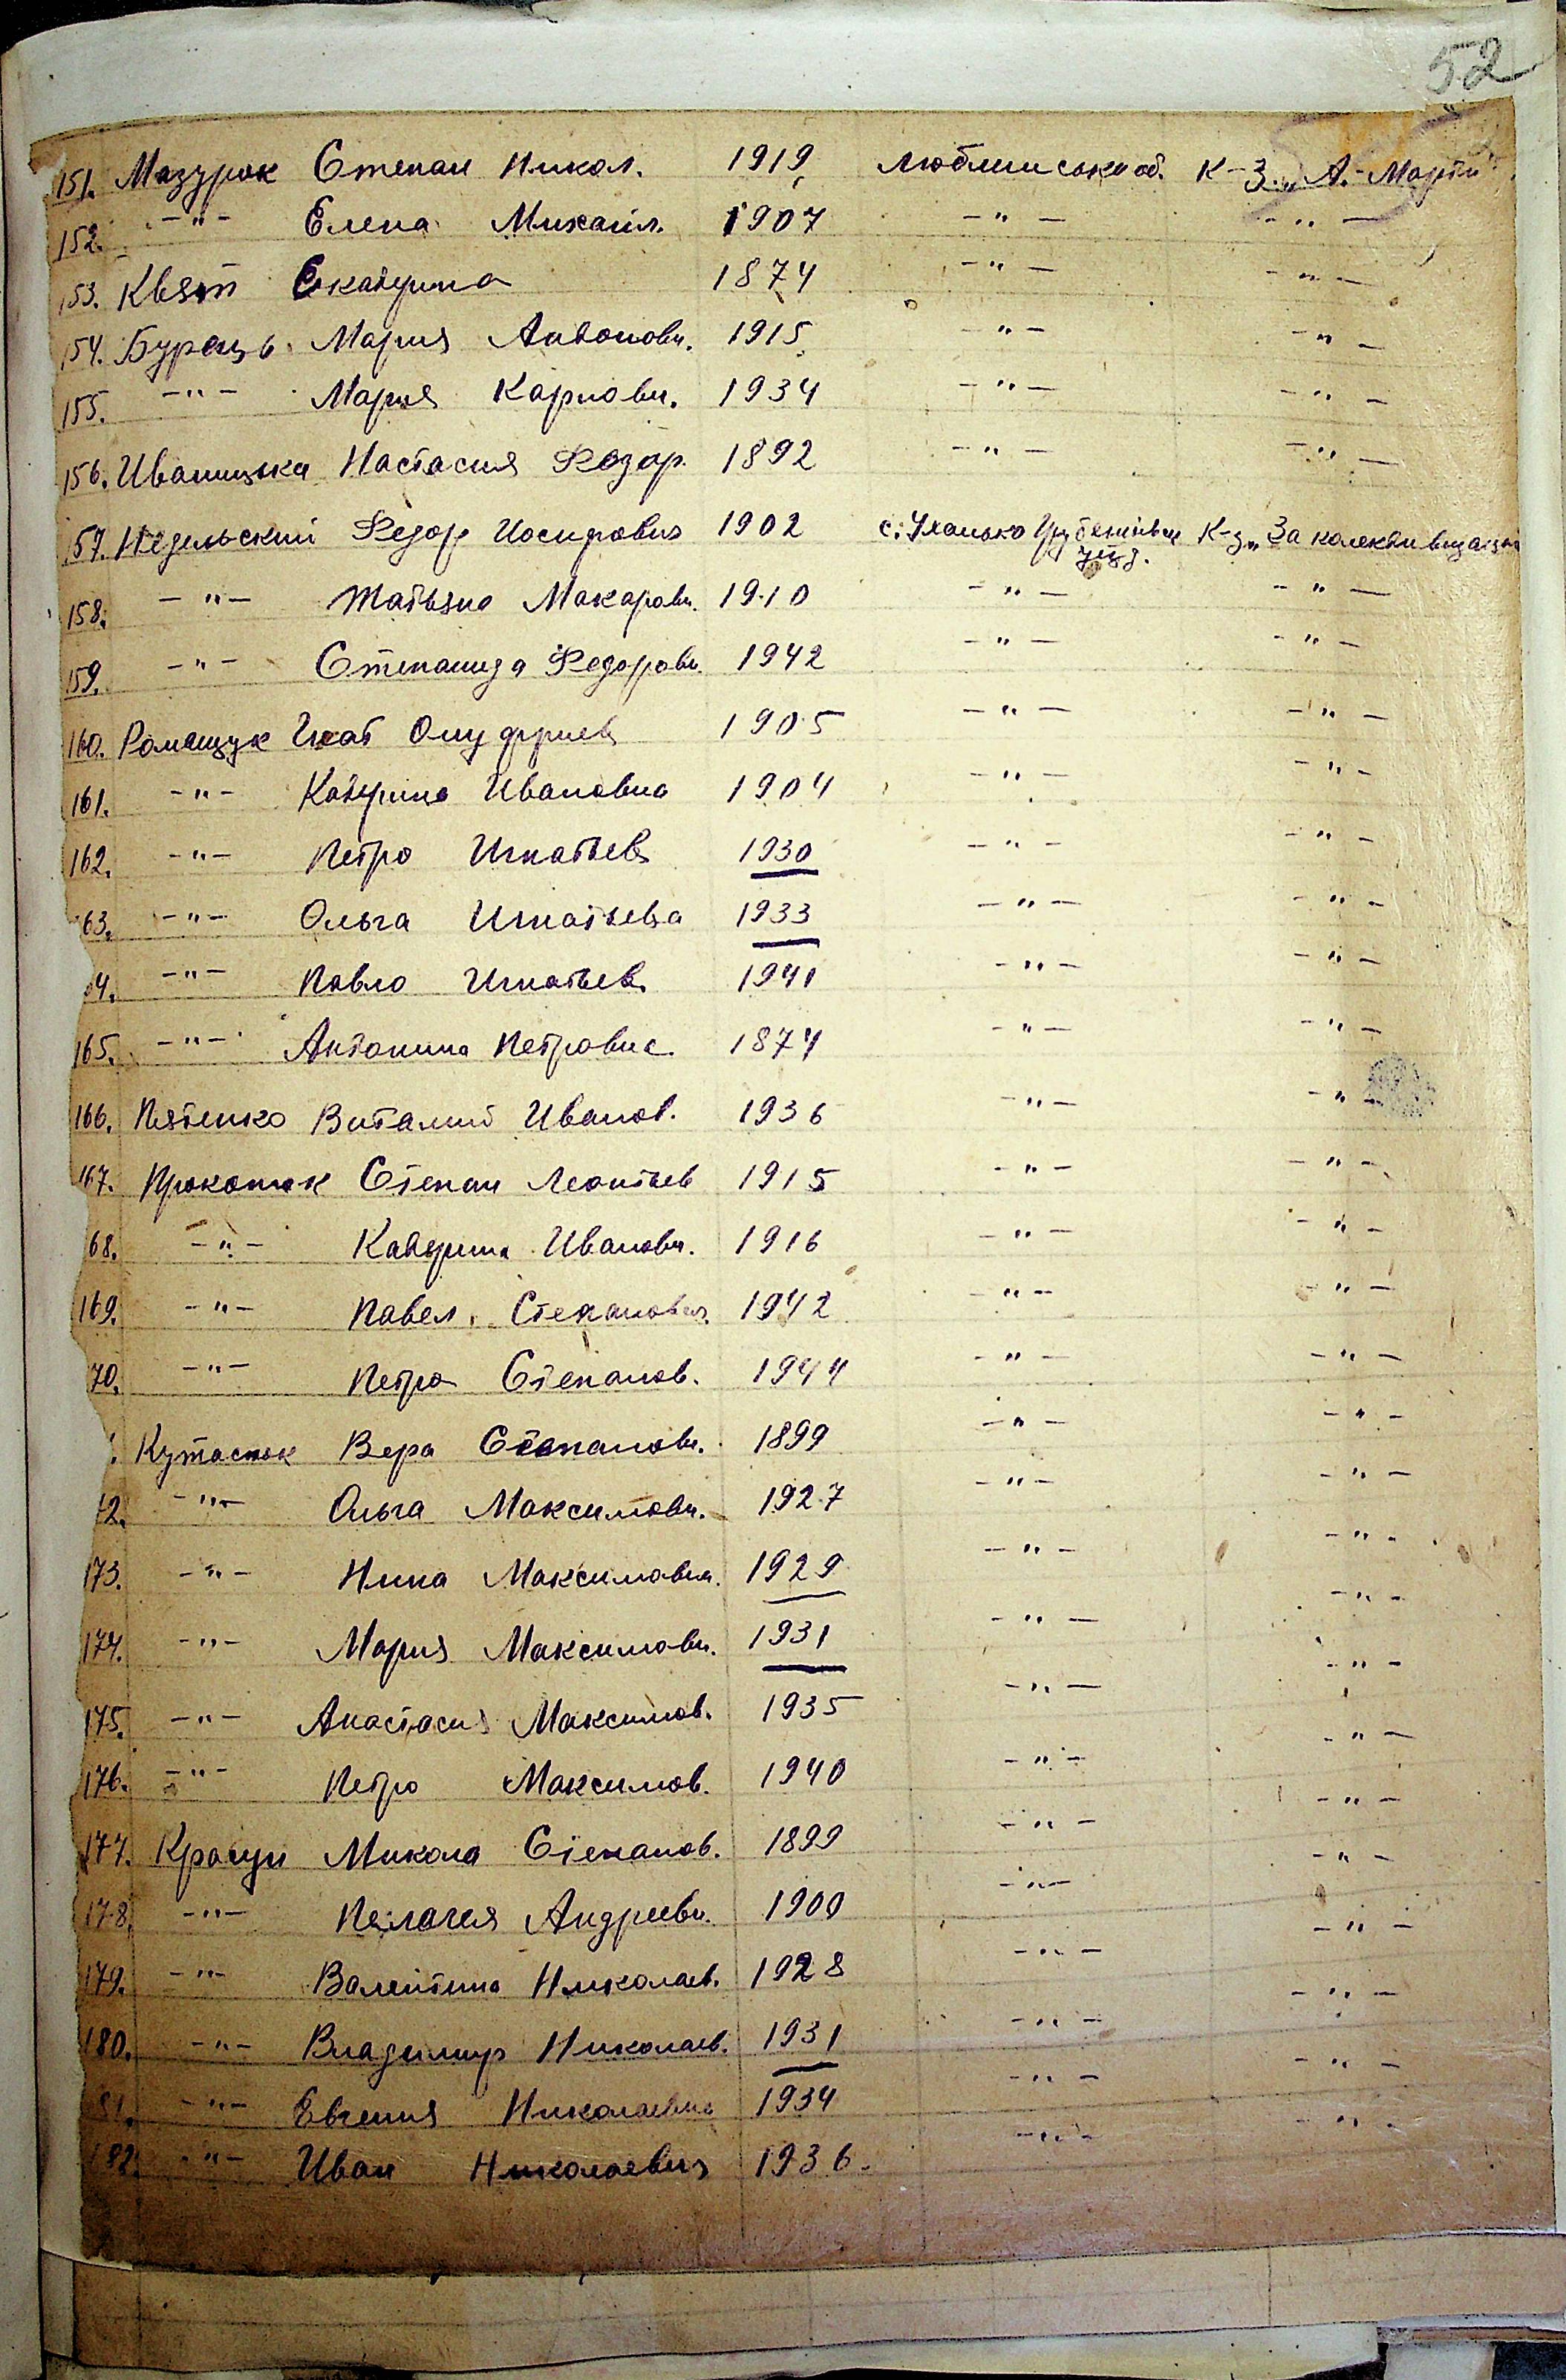 52
151. Мазурок Степан Никол. 1919 Люблинська об. К-з „А.-Марти"
152. -"- Елена Михаил. 1907 -"- -"-
153. Квят Екатерина 1874 -"- -"-
154. Бураць Мария Антоновн. 1915 -"- -"-
155. -"- Мария Карповн. 1934 -"- -"-
156. Иваницька Настасия Федор. 1892 -"- -"-
157. Недельский Федор Иосипович 1902 с. Уханька Грубешівськ К-з „За колективізацію
уїзд.
158. -"- Татьяна Макаровн. 1910 -"- -"-
159. -"- Степанида Федоровн. 1942 -"- -"-
160. Романчук Гнат Онуфриев 1905 -"- -"-
161. -"- Катерина Ивановна 1904 -"- -"-
162. -"- Петро Игнатьев 1930 -"- -"-
63. -"- Ольга Игнатьевна 1933 -"- -"-
4. -"- Павло Игнатьев. 1941 -"- -"-
165. -"- Антонина Петровна. 1874 -"- -"-
166. Пятенко Виталий Иванов. 1936 -"- -"-
167. Прокопюк Степан Леонтьев 1915 -"- -"-
68. -"- Катерина Ивановн. 1916 -"- -"-
169. -"- Павел Степанович 1942 -"- -"-
70. -"- Петро Степанов. 1944 -"- -"-
. Кутасюк Вера Степановн. 1899 -"- -"-
72. -"- Ольга Максимовн. 1927 -"- -"-
173. -"- Нина Максимовна. 1929 -"- -"-
174. -"- Мария Максимовн. 1931 -"- -"-
175. -"- Анастасия Максимов. 1935 -"- -"-
176. -"- Петро Максимов. 1940 -"- -"-
177. Красун Микола Степанов. 1899 -"- -"-
178. -"- Пелагея Андреевн. 1900 -"- -"-
179. -"- Валентина Николаев. 1928 -"- -"-
180. -"- Владимир Николаев. 1931 -"- -"-
81. -"- Евгения Николаевна 1934 -"- -"-
182. -"- Иван Николаевич 1936. -"- -"-